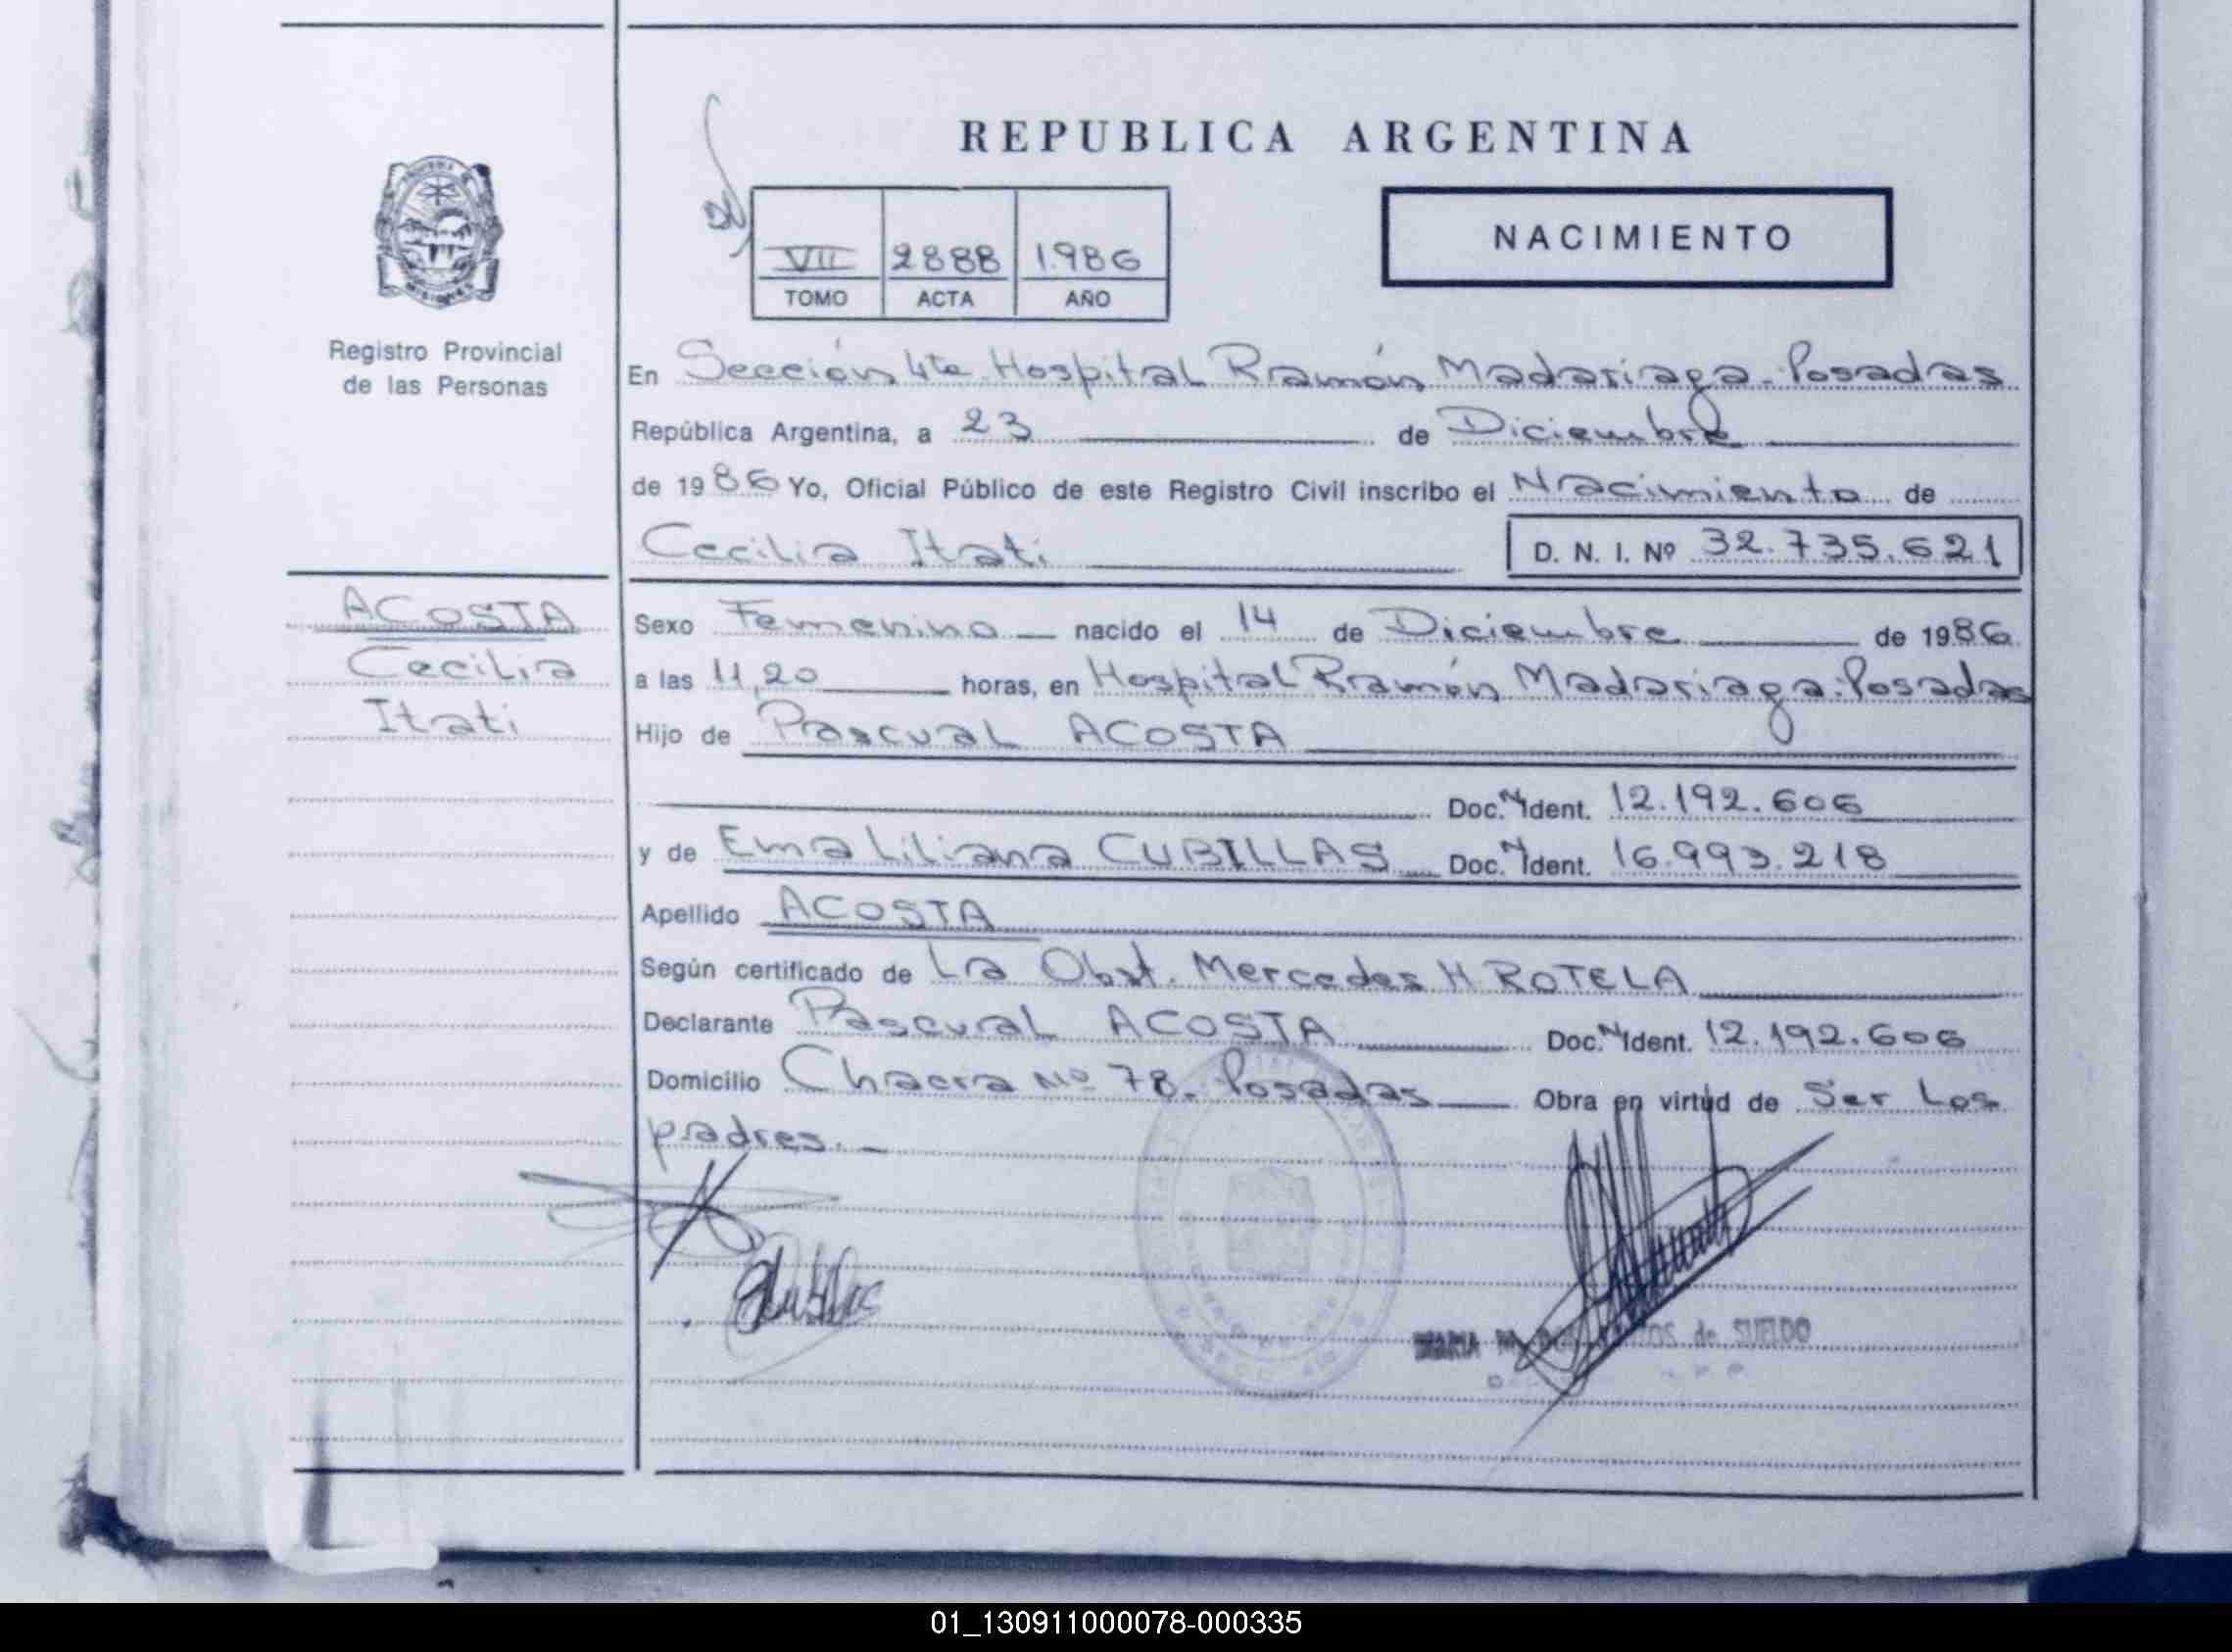 REPUBLICA ARGENTINA
VII 2888 1.986
TOMO ACTA AÑO
NACIMIENTO
Registro Provincial
de las Personas
En Sección 4ta Hospital Ramón Madariaga - Posadas
República Argentina, a 23 de Diciembre
de 1986 Yo, Oficial Público de este Registro Civil inscribo el Nacimiento de
Cecilia Itati D. N. I. Nº 32.735.621
ACOSTA
Cecilia
Itati
Sexo Femenino nacido el 14 de Diciembre de 1986
a las 11,20 horas, en Hospital Ramón Madariaga - Posadas
Hijo de Pascual ACOSTA
Doc. N. Ident. 12.192.606
y de Ema Liliana CUBILLAS Doc. N. Ident. 16.993.218
Apellido ACOSTA
Según certificado de La Obst. Mercedes H ROTELA
Declarante Pascual ACOSTA Doc. N. Ident. 12.192.606
Domicilio Chacra Nº 78. Posadas Obra en virtud de Ser Los
padres.
MARIA de SUELDO
01_130911000078-000335